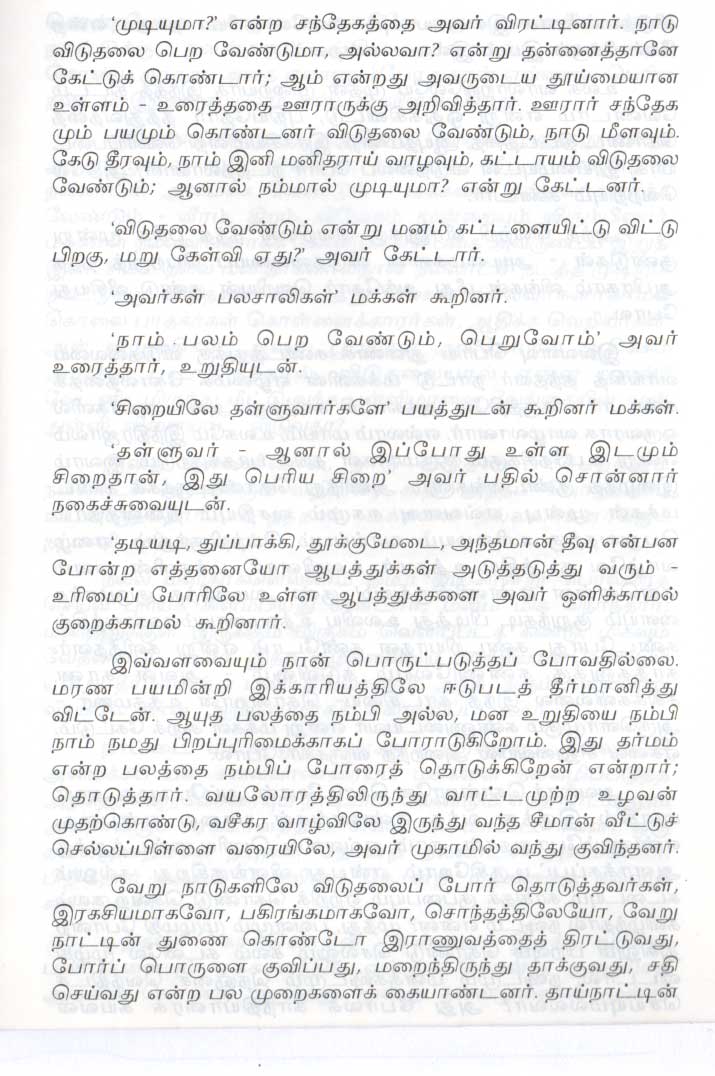 ‘முடியுமா?’ என்ற சந்தேகத்தை அவர் விரட்டினார். நாடு
விடுதலை பெற வேண்டுமா, அல்லவா? என்று தன்னைத்தானே
கேட்டுக் கொண்டார்; ஆம் என்றது அவருடைய தூய்மையான
உள்ளம் - உரைத்ததை ஊராருக்கு அறிவித்தார். ஊரார் சந்தேக
மும் பயமும் கொண்டனர் விடுதலை வேண்டும், நாடு மீளவும்.
கேடு தீரவும், நாம் இனி மனிதராய் வாழவும், கட்டாயம் விடுதலை
வேண்டும்; ஆனால் நம்மால் முடியுமா? என்று கேட்டனர்.
‘விடுதலை வேண்டும் என்று மனம் கட்டளையிட்டு விட்டு
பிறகு, மறு கேள்வி ஏது?’ அவர் கேட்டார்.
‘அவர்கள் பலசாலிகள்’ மக்கள் கூறினர்.
‘நாம் பலம் பெற வேண்டும், பெறுவோம்’ அவர்
உரைத்தார், உறுதியுடன்.
‘சிறையிலே தள்ளுவார்களே’ பயத்துடன் கூறினர் மக்கள்.
‘தள்ளுவர் - ஆனால் இப்போது உள்ள இடமும்
சிறைதான், இது பெரிய சிறை’ அவர் பதில் சொன்னார்
நகைச்சுவையுடன்.
‘தடியடி, துப்பாக்கி, தூக்குமேடை, அந்தமான் தீவு என்பன
போன்ற எத்தனையோ ஆபத்துக்கள் அடுத்தடுத்து வரும் -
உரிமைப் போரிலே உள்ள ஆபத்துக்களை அவர் ஒளிக்காமல்
குறைக்காமல் கூறினார்.
இவ்வளவையும் நான் பொருட்படுத்தப் போவதில்லை.
மரண பயமின்றி இக்காரியத்திலே ஈடுபடத் தீர்மானித்து
விட்டேன். ஆயுத பலத்தை நம்பி அல்ல, மன உறுதியை நம்பி
நாம் நமது பிறப்புரிமைக்காகப் போராடுகிறோம். இது தர்மம்
என்ற பலத்தை நம்பிப் போரைத் தொடுக்கிறேன் என்றார்;
தொடுத்தார். வயலோரத்திலிருந்து வாட்டமுற்ற உழவன்
முதற்கொண்டு, வசீகர வாழ்விலே இருந்து வந்த சீமான் வீட்டுச்
செல்லப்பிள்ளை வரையிலே, அவர் முகாமில் வந்து குவிந்தனர்.
வேறு நாடுகளிலே விடுதலைப் போர் தொடுத்தவர்கள்,
இரகசியமாகவோ, பகிரங்கமாகவோ, சொந்தத்திலேயோ, வேறு
நாட்டின் துணை கொண்டோ இராணுவத்தைத் திரட்டுவது,
போர்ப் பொருளை குவிப்பது, மறைந்திருந்து தாக்குவது, சதி
செய்வது என்ற பல முறைகளைக் கையாண்டனர். தாய்நாட்டின்